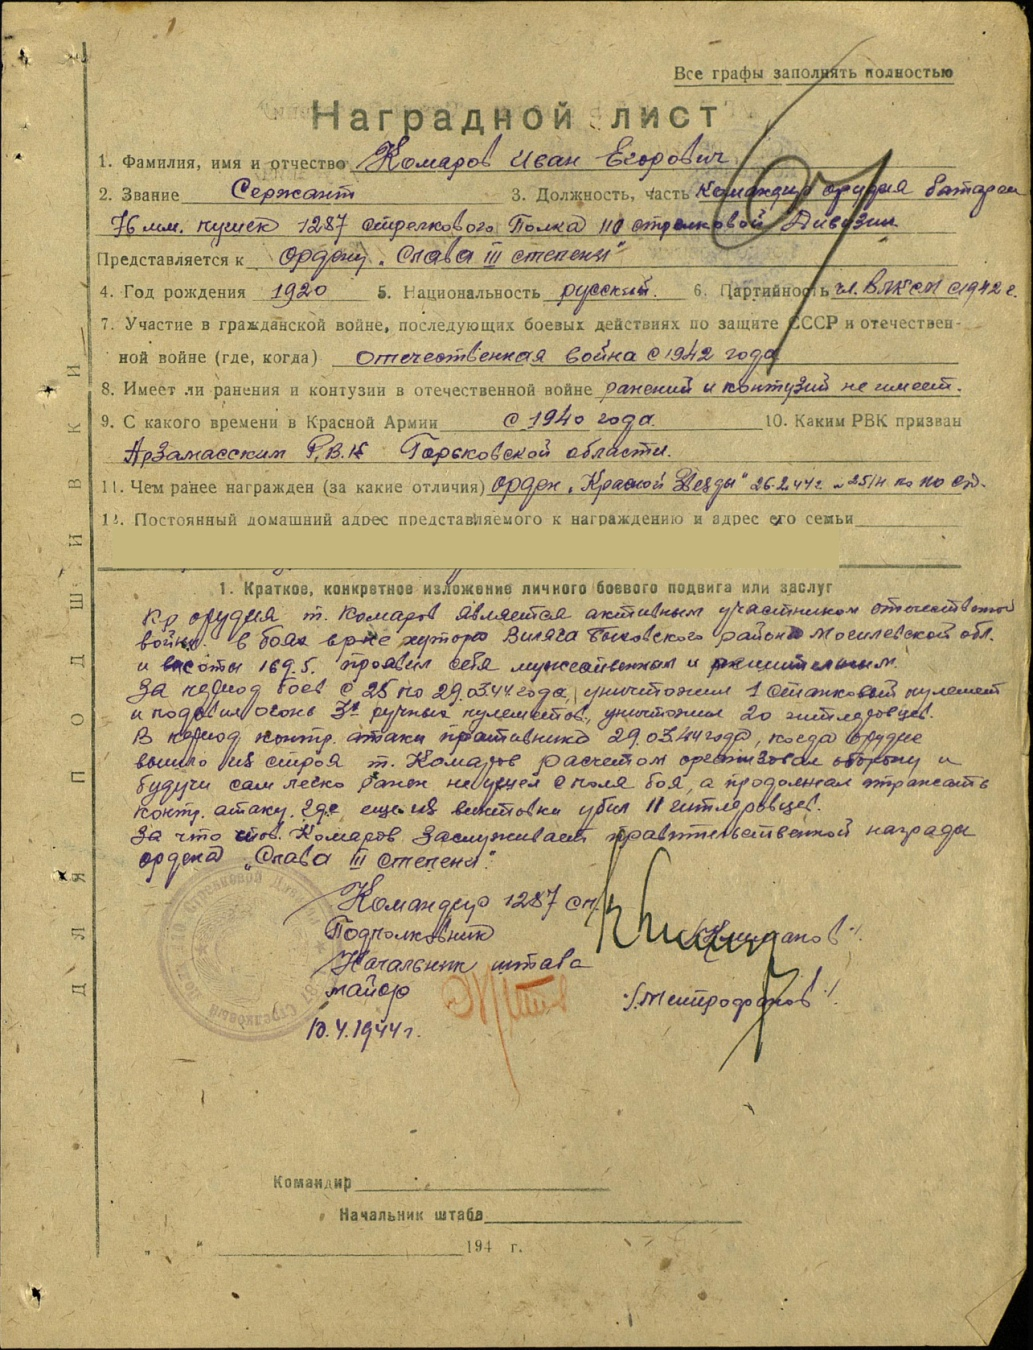 Все графы заполнять полностью
Наградной лист
1. Фамилия, имя и отчество Комаров Иван Егорович
2. Звание Сержант 3. Должность, часть Командир орудия батареи
76 мм. пушек 1287 стрелкового Полка 110 стрелковой Дивизии
Представляется к ордену „Слава III степени"
4. Год рождения 1920 5. Национальность русский. 6. Партийность чл. ВЛКСМ с 1942 г.
7. Участие в гражданской войне, последующих боевых действиях по защите СССР и отечествен-
ной войне (где, когда) Отечественная война с 1942 года
8. Имеет ли ранения и контузии в отечественной войне ранений и контузий не имеет.
9. С какого времени в Красной Армии с 1940 года. 10. Каким РВК призван
Арзамасским Р.В.К Горьковской области.
11. Чем ранее награжден (за какие отличия) орден „Красной Звезды" 26.2.44 г. № 25/н по 110 сд.
12. Постоянный домашний адрес представляемого к награждению и адрес его семьи
1. Краткое, конкретное изложение личного боевого подвига или заслуг
Кр орудия т. Комаров является активным участником отечественной
войны. В боях в р-не хутора Быховского района Могилевской обл.
и высоты 169.5. проявил себя мужественным и решительным.
За период боев с 25 по 29.03.44 года, уничтожил 1 станковый пулемет
и подавил огонь 3х ручных пулеметов, уничтожил 20 гитлеровцев.
В период контр. атаки противника 29.03.44 года, когда орудие
вышло из строя т. Комаров расчетом организовал оборону и
будучи сам легко ранен не ушел с поля боя, а продолжал отражать
контр. атаку. где еще из винтовки убил 11 гитлеровцев.
За что тов. Комаров заслуживает правительственной награды
ордена „Слава III степени".
Командир 1287 сп.
Подполковник
Начальник штаба
майор /Митрофанов/.
10.4.1944 г.
Командир
Начальник штаба
" 194 г.
ДЛЯ ПОДШИВКИ